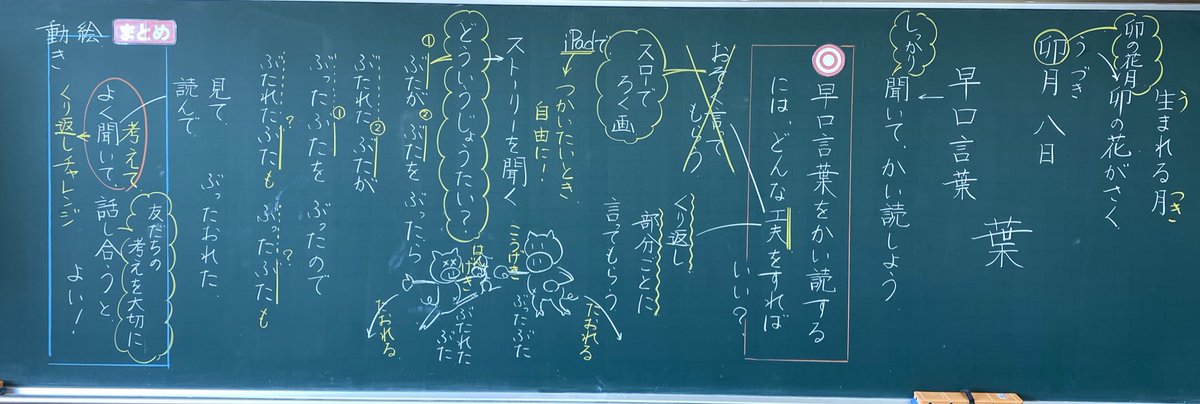 生まれる月
う
つき
卯の花月
卯の花がさく
卯月八日
うづき
早口言葉
葉
しっかり
聞いて、かい読しよう
早口言葉をかい読する
には、どんな工夫をすれば
いい?
おそく言って
もらう
くり返し
部分ごとに
言ってもらう
スローで
ろく画
iPadで
つかいたいとき
自由に!
ストーリーを聞く
どういうじょうたい?
① ②
ぶたが ぶたを ぶったら
ぶたれたぶたが
②
ぶったぶたを ぶったので
①
ぶたれたぶたも ぶったぶたも
? ?
ぶったおれた
こうげき
はんげき
ぶったぶた
ぶたれた
ぶた
たおれる
たおれる
まとめ
絵
動き
見て
読んで
考えて
よく聞いて、話し合うと
よい!
友だちの
考えを大切に
くり返しチャレンジ